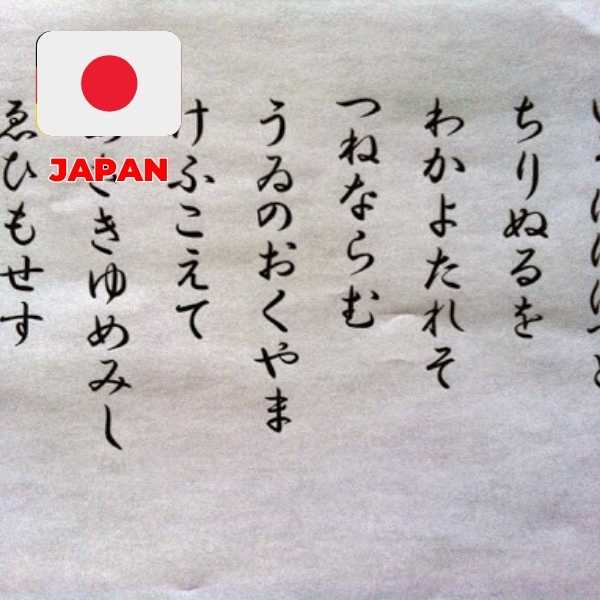 JAPAN
ちりぬるを
わかよたれそ
つねならむ
うゐのおくやま
けふこえて
さきゆめみし
ゑひもせす